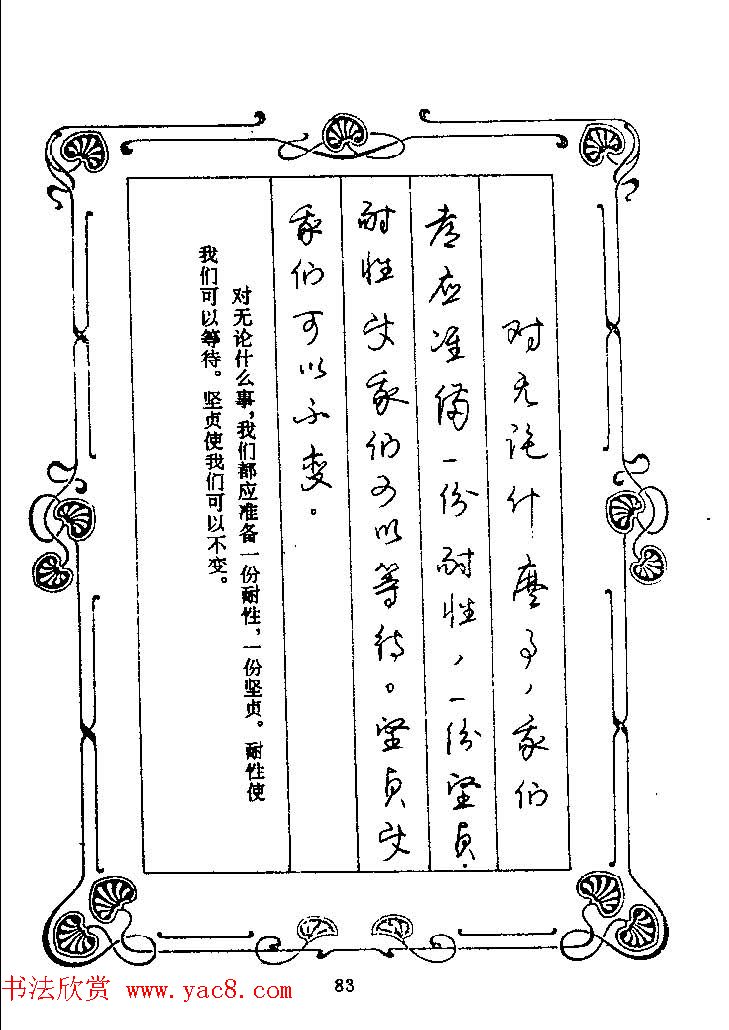 对无论什麼事，我们
都应准備一份耐性，一份坚贞.
耐性使我们可以等待。坚贞使
我们可以不变。
对无论什么事，我们都应准备一份耐性，一份坚贞。耐性使
我们可以等待。坚贞使我们可以不变。
83
书法欣赏 www.yac8.com